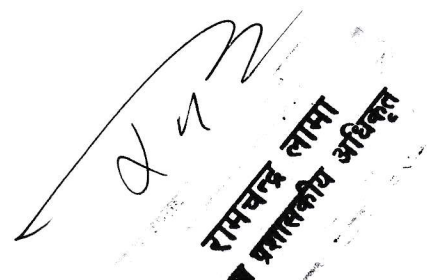 रामचन्द्र लामा
प्रशासकीय अधिकृत